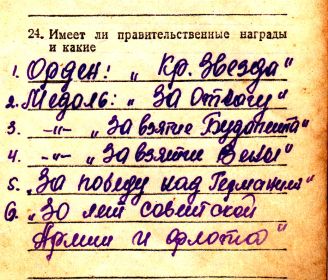 24. Имеет ли правительственные награды
и какие
1. Орден: „Кр. Звезда"
2. Медаль: „За Отвагу"
3. -"- „За взятие Будапешта"
4. -"- „За взятие Вены"
5. „За победу над Германией"
6. „30 лет советской
Армии и флота"